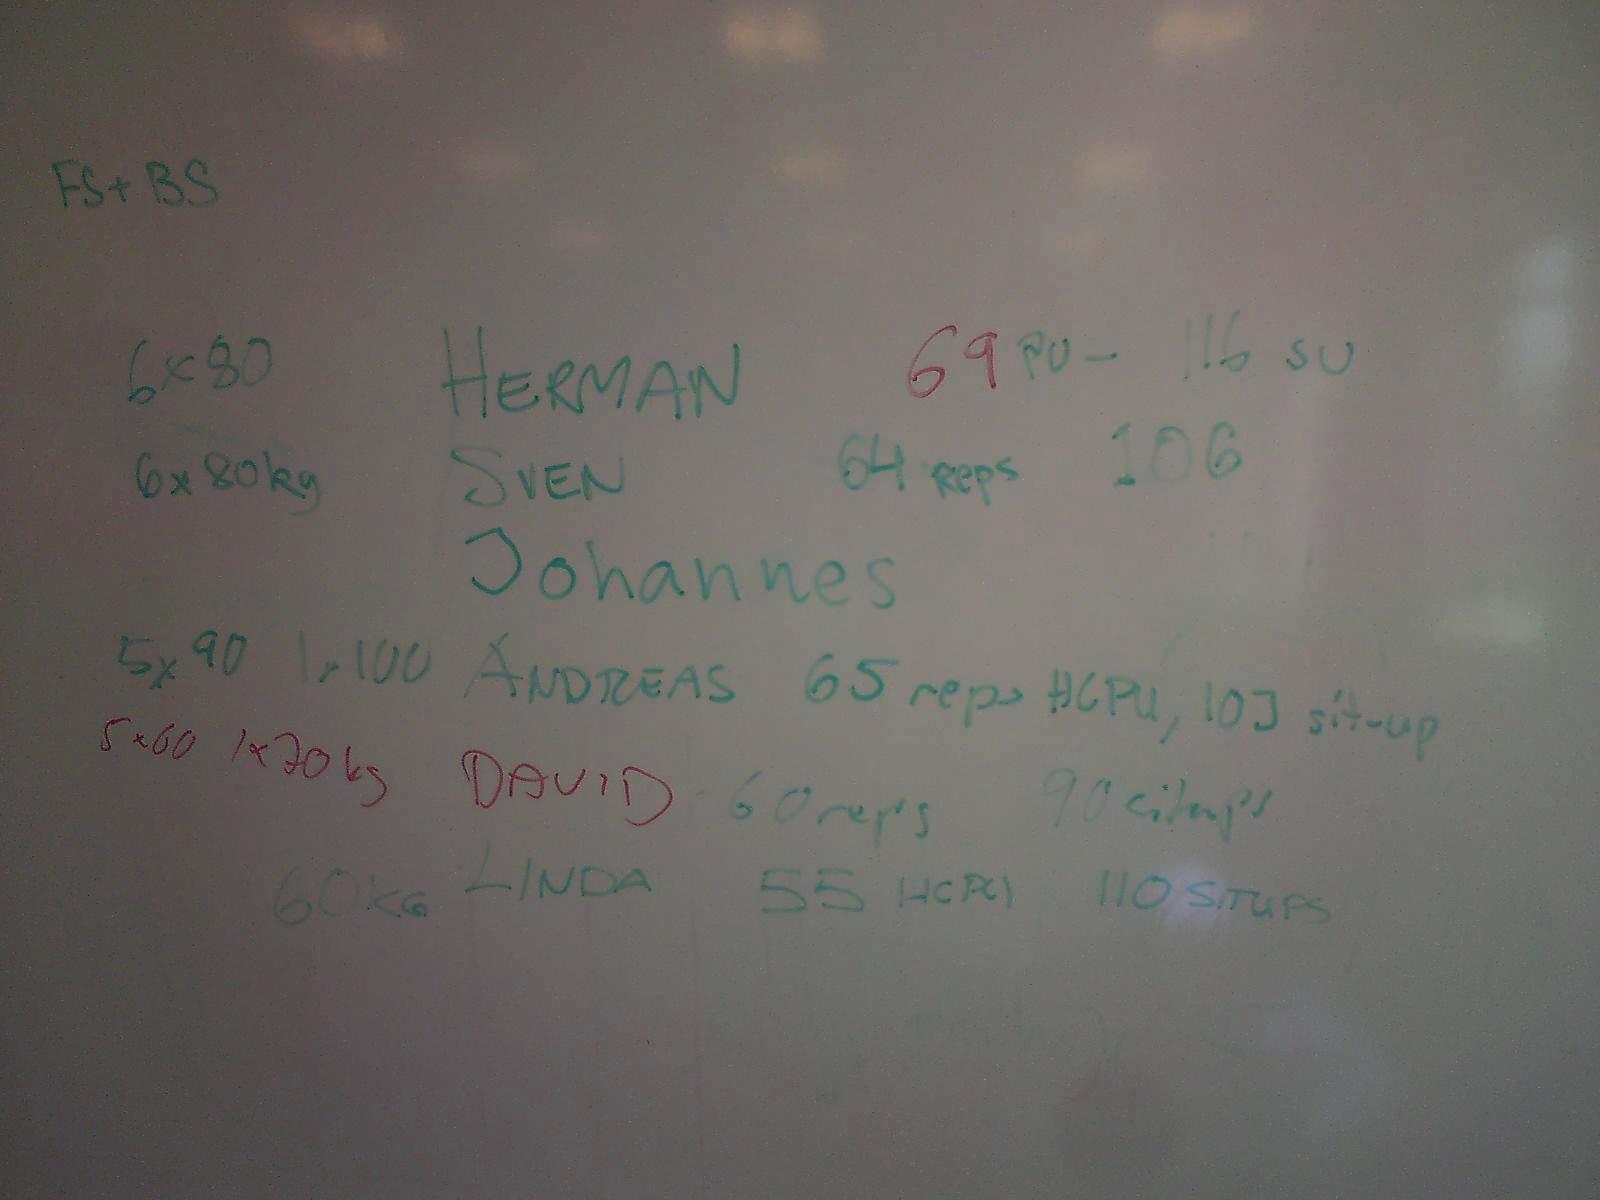 FS+ BS
6x80 HERMAN 69 PU - 116 SU
6x80kg SVEN 64 reps 106
Johannes
5x90 1x100 ANDREAS 65 reps HCPU, 103 sit-up
5x60 1x70kg DAVID 60 reps 90 situps
60KG LINDA 55 HCPU 110 SITUPS